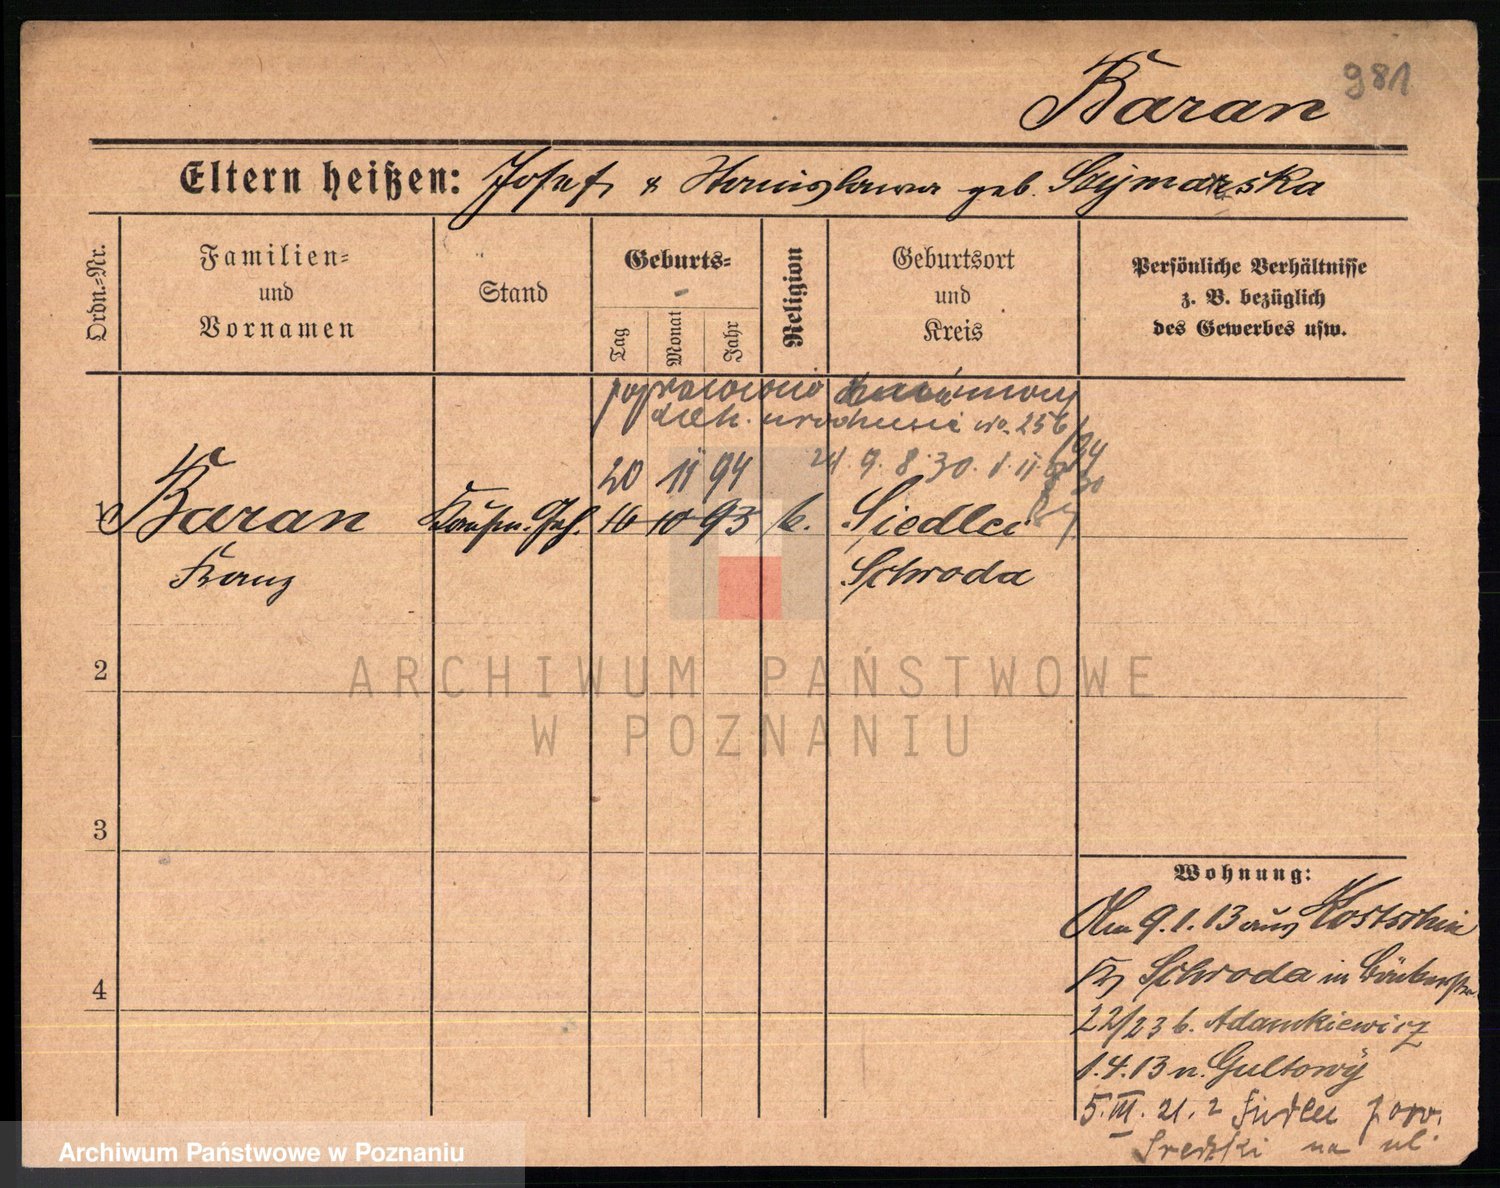 981
Baran
Eltern heißen: Josef & Stanislawa geb. Szymarska
Ordn.-Nr.
Familien=
und
Vornamen
Stand
Geburts=
Tag
Monat
Jahr
Religion
Geburtsort
und
Kreis
Persönliche Verhältnisse
z. B. bezüglich
des Gewerbes usw.
poprawiono
urodzenia No. 256/94
20 11 94
1 Baran
Franz
Kaufm. Geh.
16 10 93
k.
Siedlec
Schroda
2
3
4
Wohnung:
Am 9.1.13 aus Kostschin
Kr Schroda in
22/23 b. Adamkiewicz
1.4.13 n. Gultowy
5.III.21. z Siedlec pow.
Sredzki na ul.
ARCHIWUM PAŃSTWOWE
W POZNANIU
Archiwum Państwowe w Poznaniu